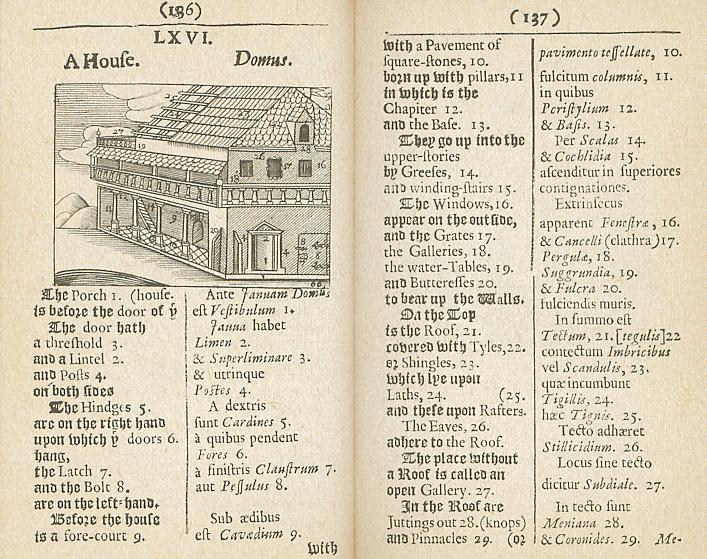 (136)
LXVI.
A House.
Domus.
The Porch 1. (house.
is before the door of ẏ
The door hath
a threshold 3.
and a Lintel 2.
and Posts 4.
on both sides
The Hindges 5.
are on the right hand
upon which ẏ doors 6.
hang,
the Latch 7.
and the Bolt 8.
are on the left-hand.
Before the house
is a fore-court 9.
Ante Januam Domûs
est Vestibulum 1.
Janua habet
Limen 2.
& Superliminare 3.
& utrinque
Postes 4.
A dextris
sunt Cardines 5.
à quibus pendent
Fores 6.
à sinistris Claustrum 7.
aut Pessulus 8.
Sub ædibus
est Cavædium 9.
with
(137)
with a Pavement of
square-stones, 10.
born up with pillars, 11
in which is the
Chapiter 12.
and the Base. 13.
They go up into the
upper-stories
by Greeses, 14.
and winding-stairs 15.
The Windows, 16.
appear on the outside,
and the Grates 17.
the Galleries, 18.
the water-Tables, 19.
and Butteresses 20.
to bear up the Walls.
On the Top
is the Roof, 21.
covered with Tyles, 22.
or Shingles, 23.
which lye upon
Laths, 24. (25.
and these upon Rafters.
The Eaves, 26.
adhere to the Roof.
The place without
a Roof is called an
open Gallery. 27.
In the Roof are
Juttings out 28. (knops)
and Pinnacles 29. (or
pavimento tessellate, 10.
fulcitum columnis, 11.
in quibus
Peristylium 12.
& Basis. 13.
Per Scalas 14.
& Cochlidia 15.
ascenditur in superiores
contignationes.
Extrinsecus
apparent Fenestræ, 16.
& Cancelli (clathra) 17.
Pergulæ, 18.
Suggrundia, 19.
& Fulcra 20.
fulciendis muris.
In summo est
Tectum, 21. [tegulis] 22
contectum Imbricibus
vel Scandulis, 23.
quæ incumbunt
Tigillis, 24.
hæc Tignis. 25.
Tecto adhæret
Stillicidium. 26.
Locus sine tecto
dicitur Subdiale. 27.
In tecto sunt
Meniana 28.
& Coronides. 29. Me-